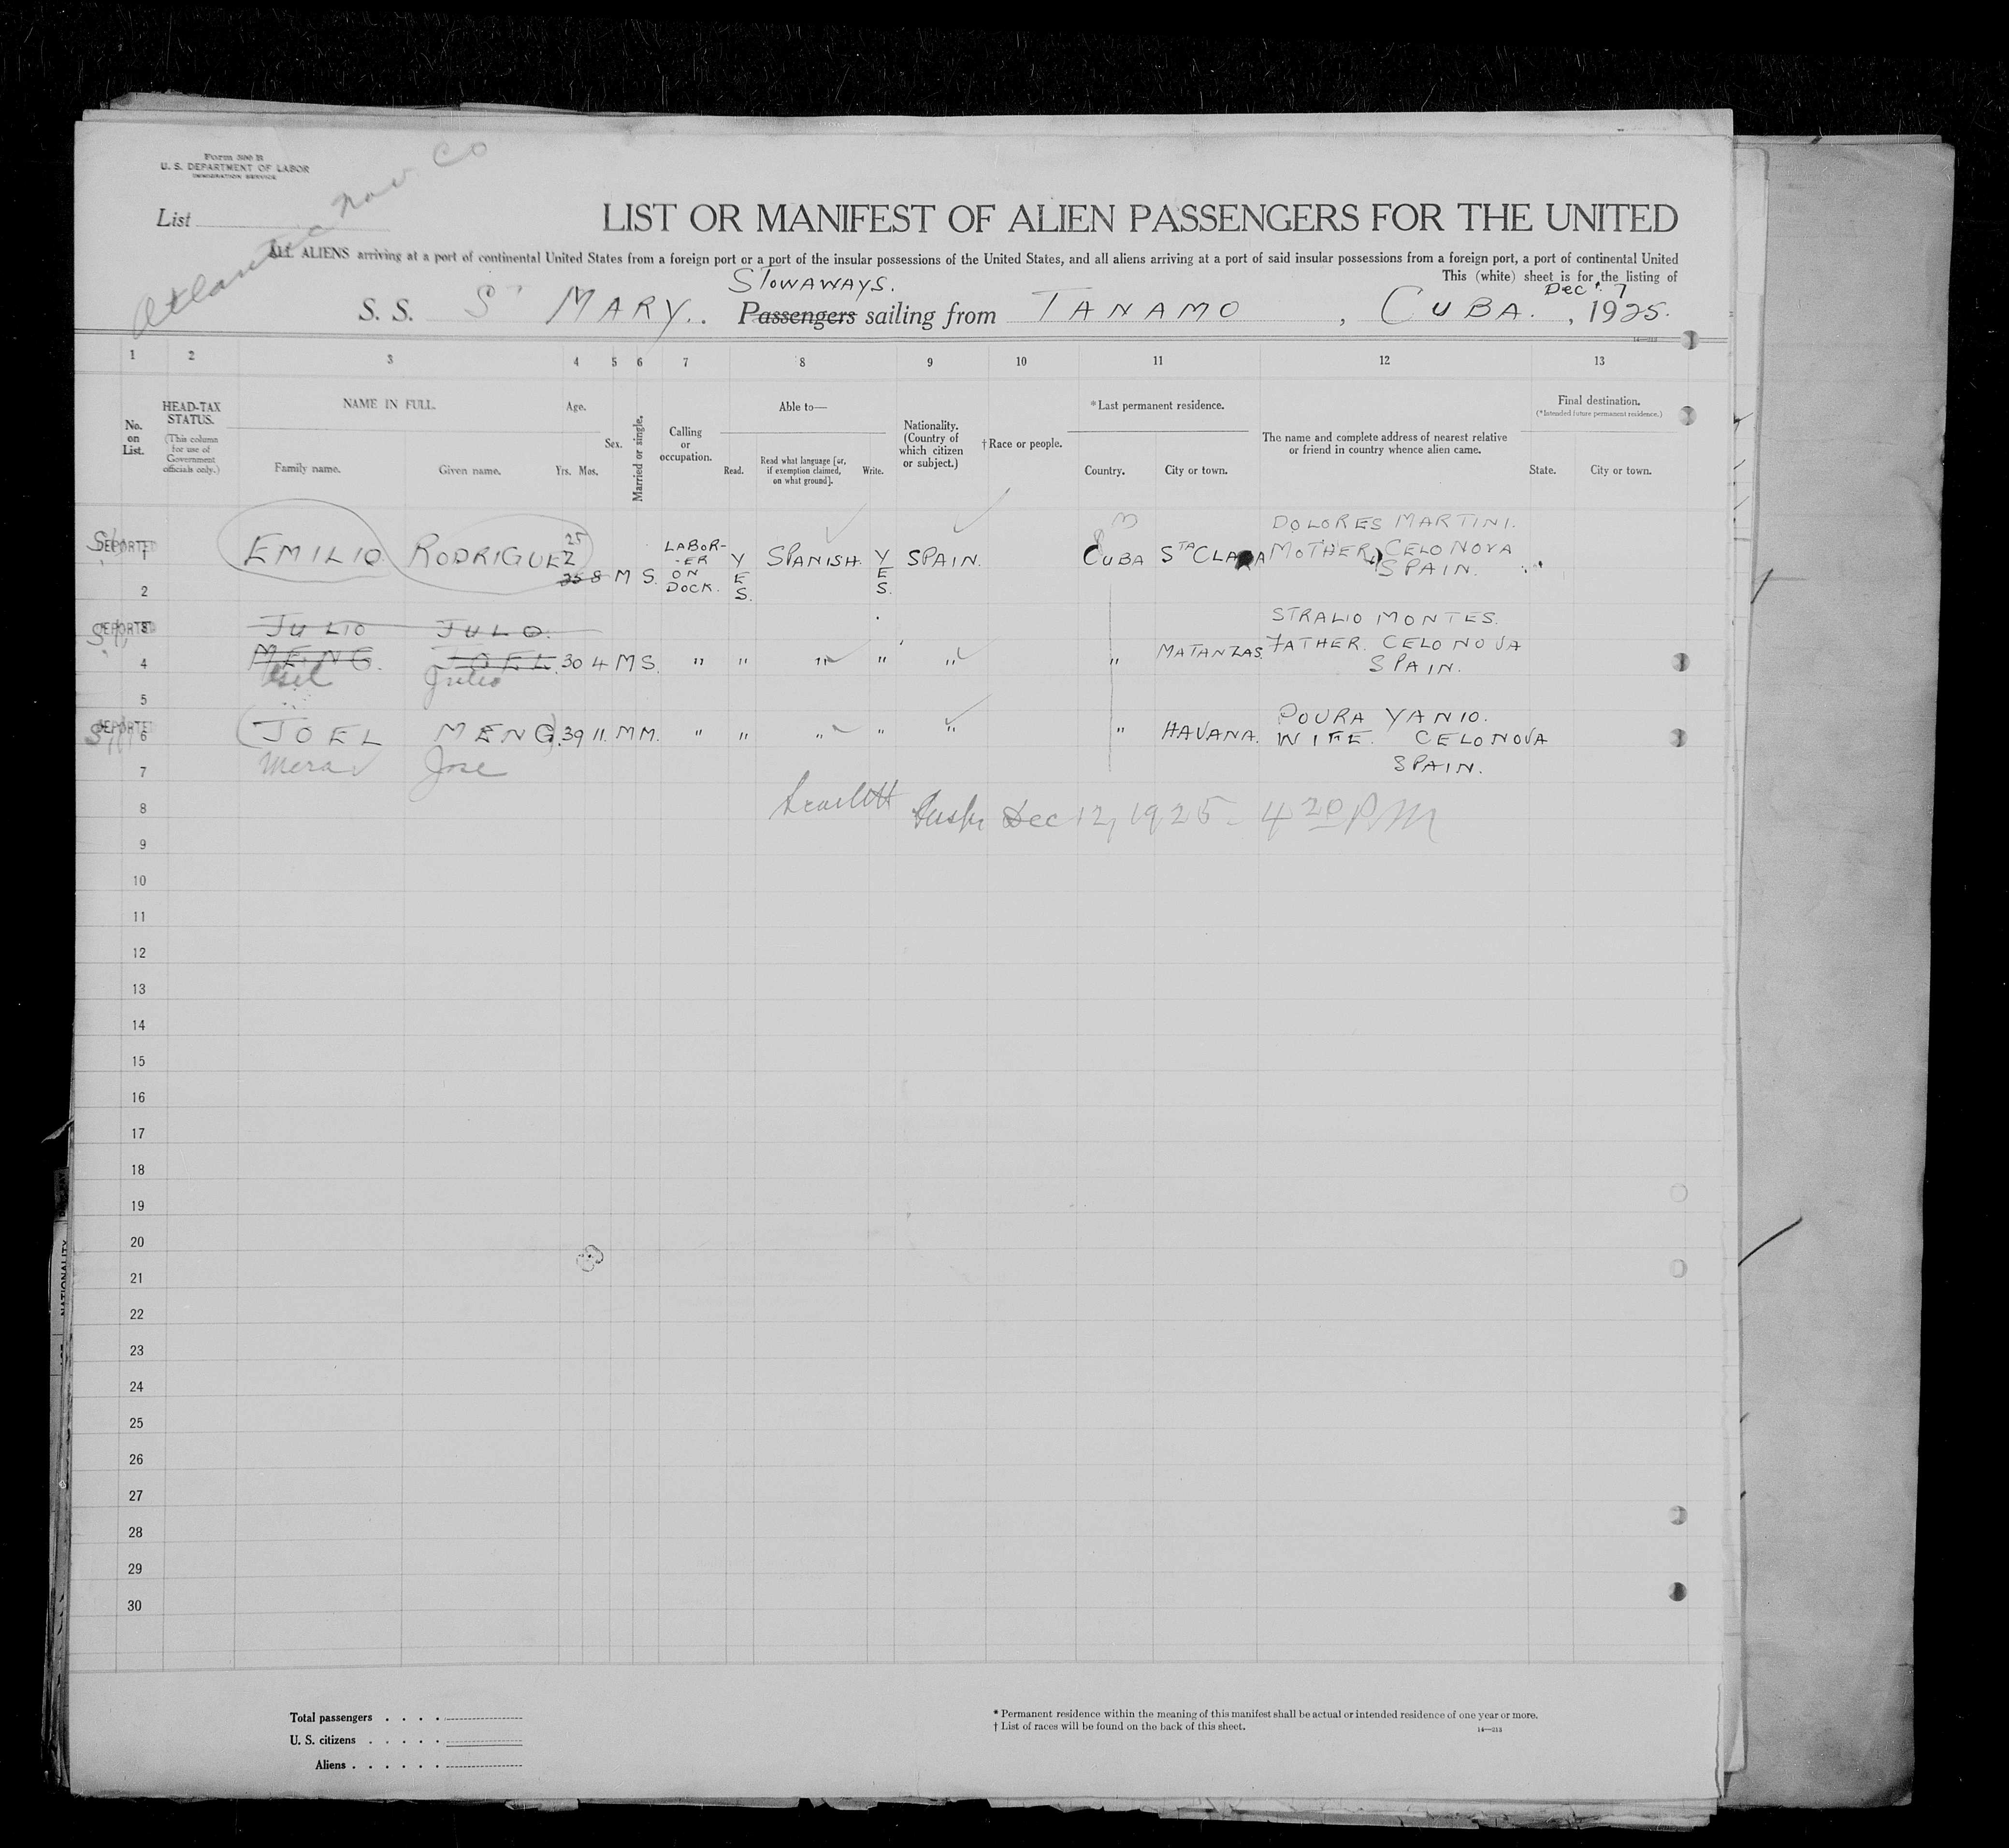 Form 500 B
U. S. DEPARTMENT OF LABOR
IMMIGRATION SERVICE
Atlantic Nav Co
List
LIST OR MANIFEST OF ALIEN PASSENGERS FOR THE UNITED
ALL ALIENS arriving at a port of continental United States from a foreign port or a port of the insular possessions of the United States, and all aliens arriving at a port of said insular possessions from a foreign port, a port of continental United
This (white) sheet is for the listing of
STOWAWAYS.
Dec. 7
S. S. ST MARY. Passengers sailing from TANAMO, CUBA., 1925.
1 2 3 4 5 6 7 8 9 10 11 12 13
No. on List.
HEAD-TAX STATUS.
(This column for use of Government officials only.)
NAME IN FULL.
Family name. Given name.
Age.
Yrs. Mos.
Sex.
Married or single.
Calling or occupation.
Able to—
Read.
Read what language [or, if exemption claimed, on what ground].
Write.
Nationality. (Country of which citizen or subject.)
†Race or people.
*Last permanent residence.
Country. City or town.
The name and complete address of nearest relative or friend in country whence alien came.
Final destination.
(*Intended future permanent residence.)
State. City or town.
DEPORTED 1 EMILIO RODRIGUEZ 25 25 8 M S. LABOR-ER ON DOCK. YES. SPANISH. YES. SPAIN. CUBA STA CLARA DOLORES MARTINI. MOTHER, CELONOVA SPAIN.
2
DEPORTED 3 JULIO JULO.
4 MENG. JOEL. 30 4 M S. " " " " " " MATANZAS. STRALIO MONTES. FATHER. CELONOVA SPAIN.
Julio
5
DEPORTED 6 JOEL MENG. 39 11. M M. " " " " " " HAVANA. POURA YANIO. WIFE. CELONOVA SPAIN.
7 Mera Jose
8 Scarlett Insp. Dec 12, 1925 - 4 20 PM
9
10
11
12
13
14
15
16
17
18
19
20
21
22
23
24
25
26
27
28
29
30
Total passengers
U. S. citizens
Aliens
* Permanent residence within the meaning of this manifest shall be actual or intended residence of one year or more.
† List of races will be found on the back of this sheet.
14—213
NATIONALITY